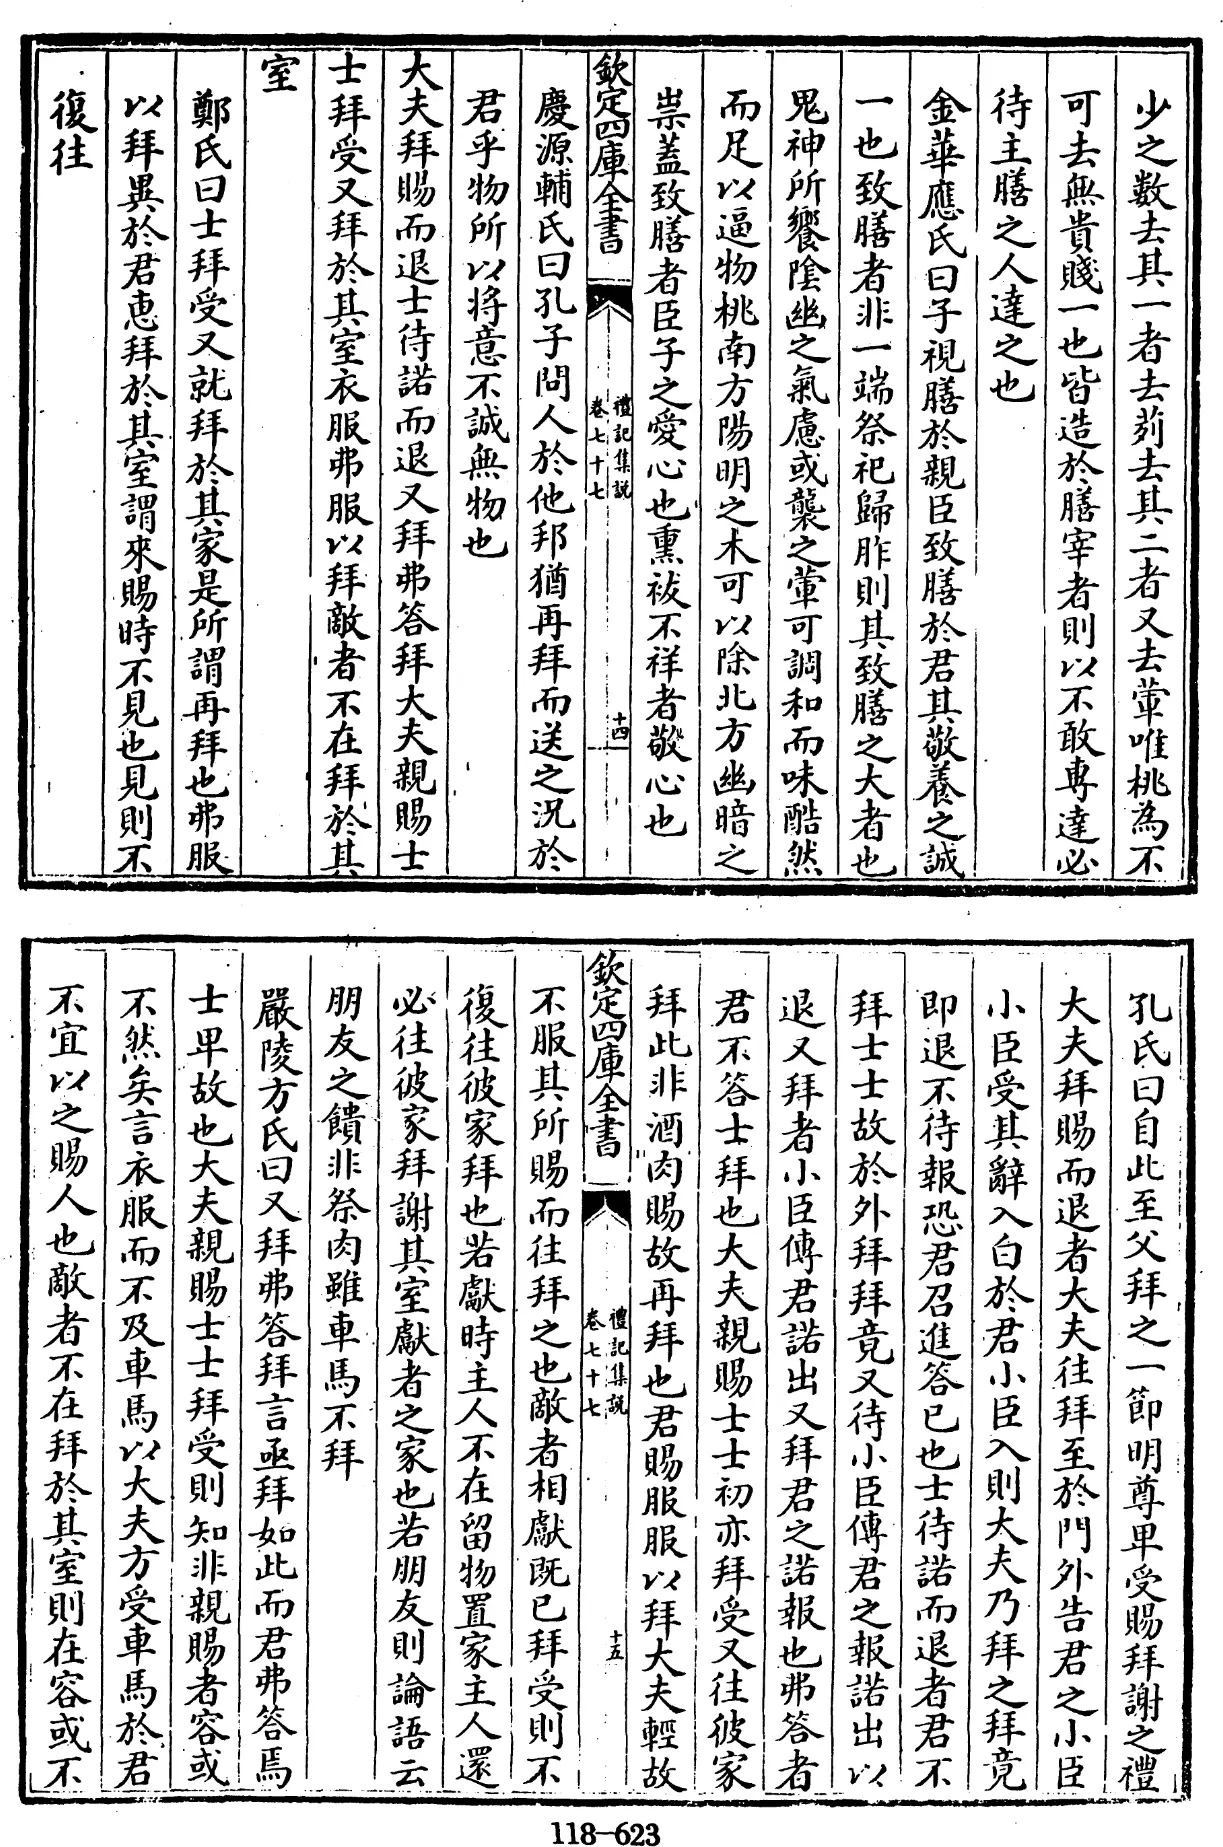 少之數去其一者去茢去其二者又去葷唯桃為不
可去無貴賤一也皆造於膳宰者則以不敢專達必
待主膳之人達之也
金華應氏曰子視膳於親臣致膳於君其敬養之誠
一也致膳者非一端祭祀歸胙則其致膳之大者也
鬼神所饗陰幽之氣慮或襲之葷可調和而味酷然
而足以逼物桃南方陽明之木可以除北方幽暗之
祟蓋致膳者臣子之愛心也熏祓不祥者敬心也
欽定四庫全書
禮記集説
卷七十七
十四
慶源輔氏曰孔子問人於他邦猶再拜而送之況於
君乎物所以將意不誠無物也
大夫拜賜而退士待諾而退又拜弗答拜大夫親賜士
士拜受又拜於其室衣服弗服以拜敵者不在拜於其
室
鄭氏曰士拜受又就拜於其家是所謂再拜也弗服
以拜異於君惠拜於其室謂來賜時不見也見則不
復往
孔氏曰自此至父拜之一節明尊卑受賜拜謝之禮
大夫拜賜而退者大夫往拜至於門外告君之小臣
小臣受其辭入白於君小臣入則大夫乃拜之拜竟
即退不待報恐君召進答已也士待諾而退者君不
拜士士故於外拜拜竟又待小臣傳君之報諾出以
退又拜者小臣傳君諾出又拜君之諾報也弗答者
君不答士拜也大夫親賜士士初亦拜受又往彼家
拜此非酒肉賜故再拜也君賜服服以拜大夫輕故
欽定四庫全書
禮記集説
卷七十七
十五
不服其所賜而往拜之也敵者相獻既已拜受則不
復往彼家拜也若獻時主人不在留物置家主人還
必往彼家拜謝其室獻者之家也若朋友則論語云
朋友之饋非祭肉雖車馬不拜
嚴陵方氏曰又拜弗答拜言亟拜如此而君弗答焉
士卑故也大夫親賜士士拜受則知非親賜者容或
不然矣言衣服而不及車馬以大夫方受車馬於君
不宜以之賜人也敵者不在拜於其室則在容或不
118-623